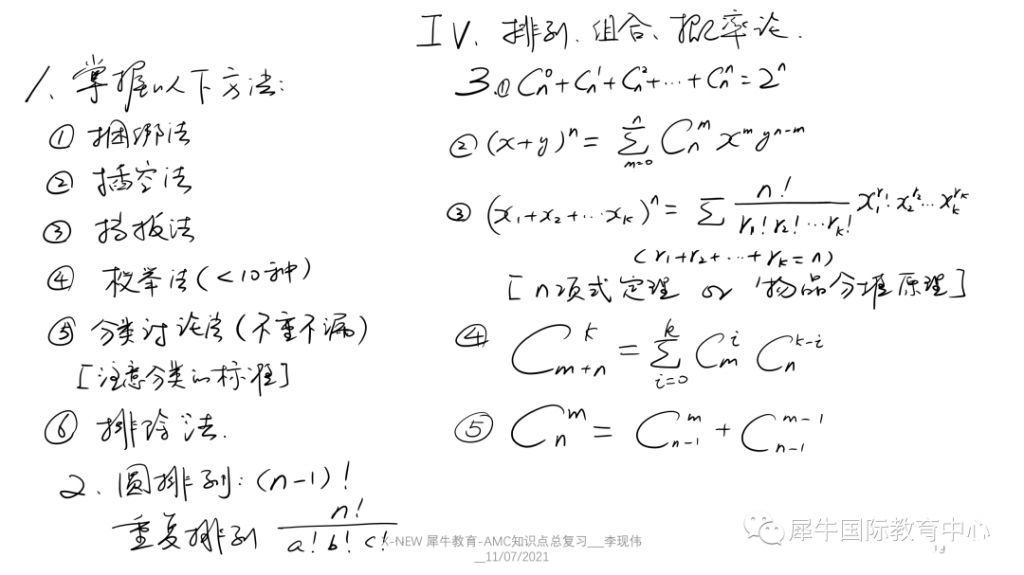 IV、排列、组合、概率论.
1、掌握以下方法:
① 捆绑法
② 插空法
③ 挡板法
④ 枚举法(<10种)
⑤ 分类讨论法(不重不漏)
[注意分类的标准]
⑥ 排除法.
2、圆排列:(n-1)!
重复排列 n!/(a!b!c!)
3.① C_n^0+C_n^1+C_n^2+…+C_n^n=2^n
② (x+y)^n = Σ_{m=0}^{n} C_n^m x^m y^{n-m}
③ (x_1+x_2+…x_k)^n = Σ n!/(r_1!r_2!…r_k!) x_1^{r_1}·x_2^{r_2}…x_k^{r_k}
(r_1+r_2+…+r_k=n)
[n项式定理 or 物品分堆原理]
④ C_{m+n}^k = Σ_{i=0}^{k} C_m^i C_n^{k-i}
⑤ C_n^m = C_{n-1}^m + C_{n-1}^{m-1}
X-NEW 犀牛教育-AMC知识点总复习__李现伟
__11/07/2021
犀牛国际教育中心